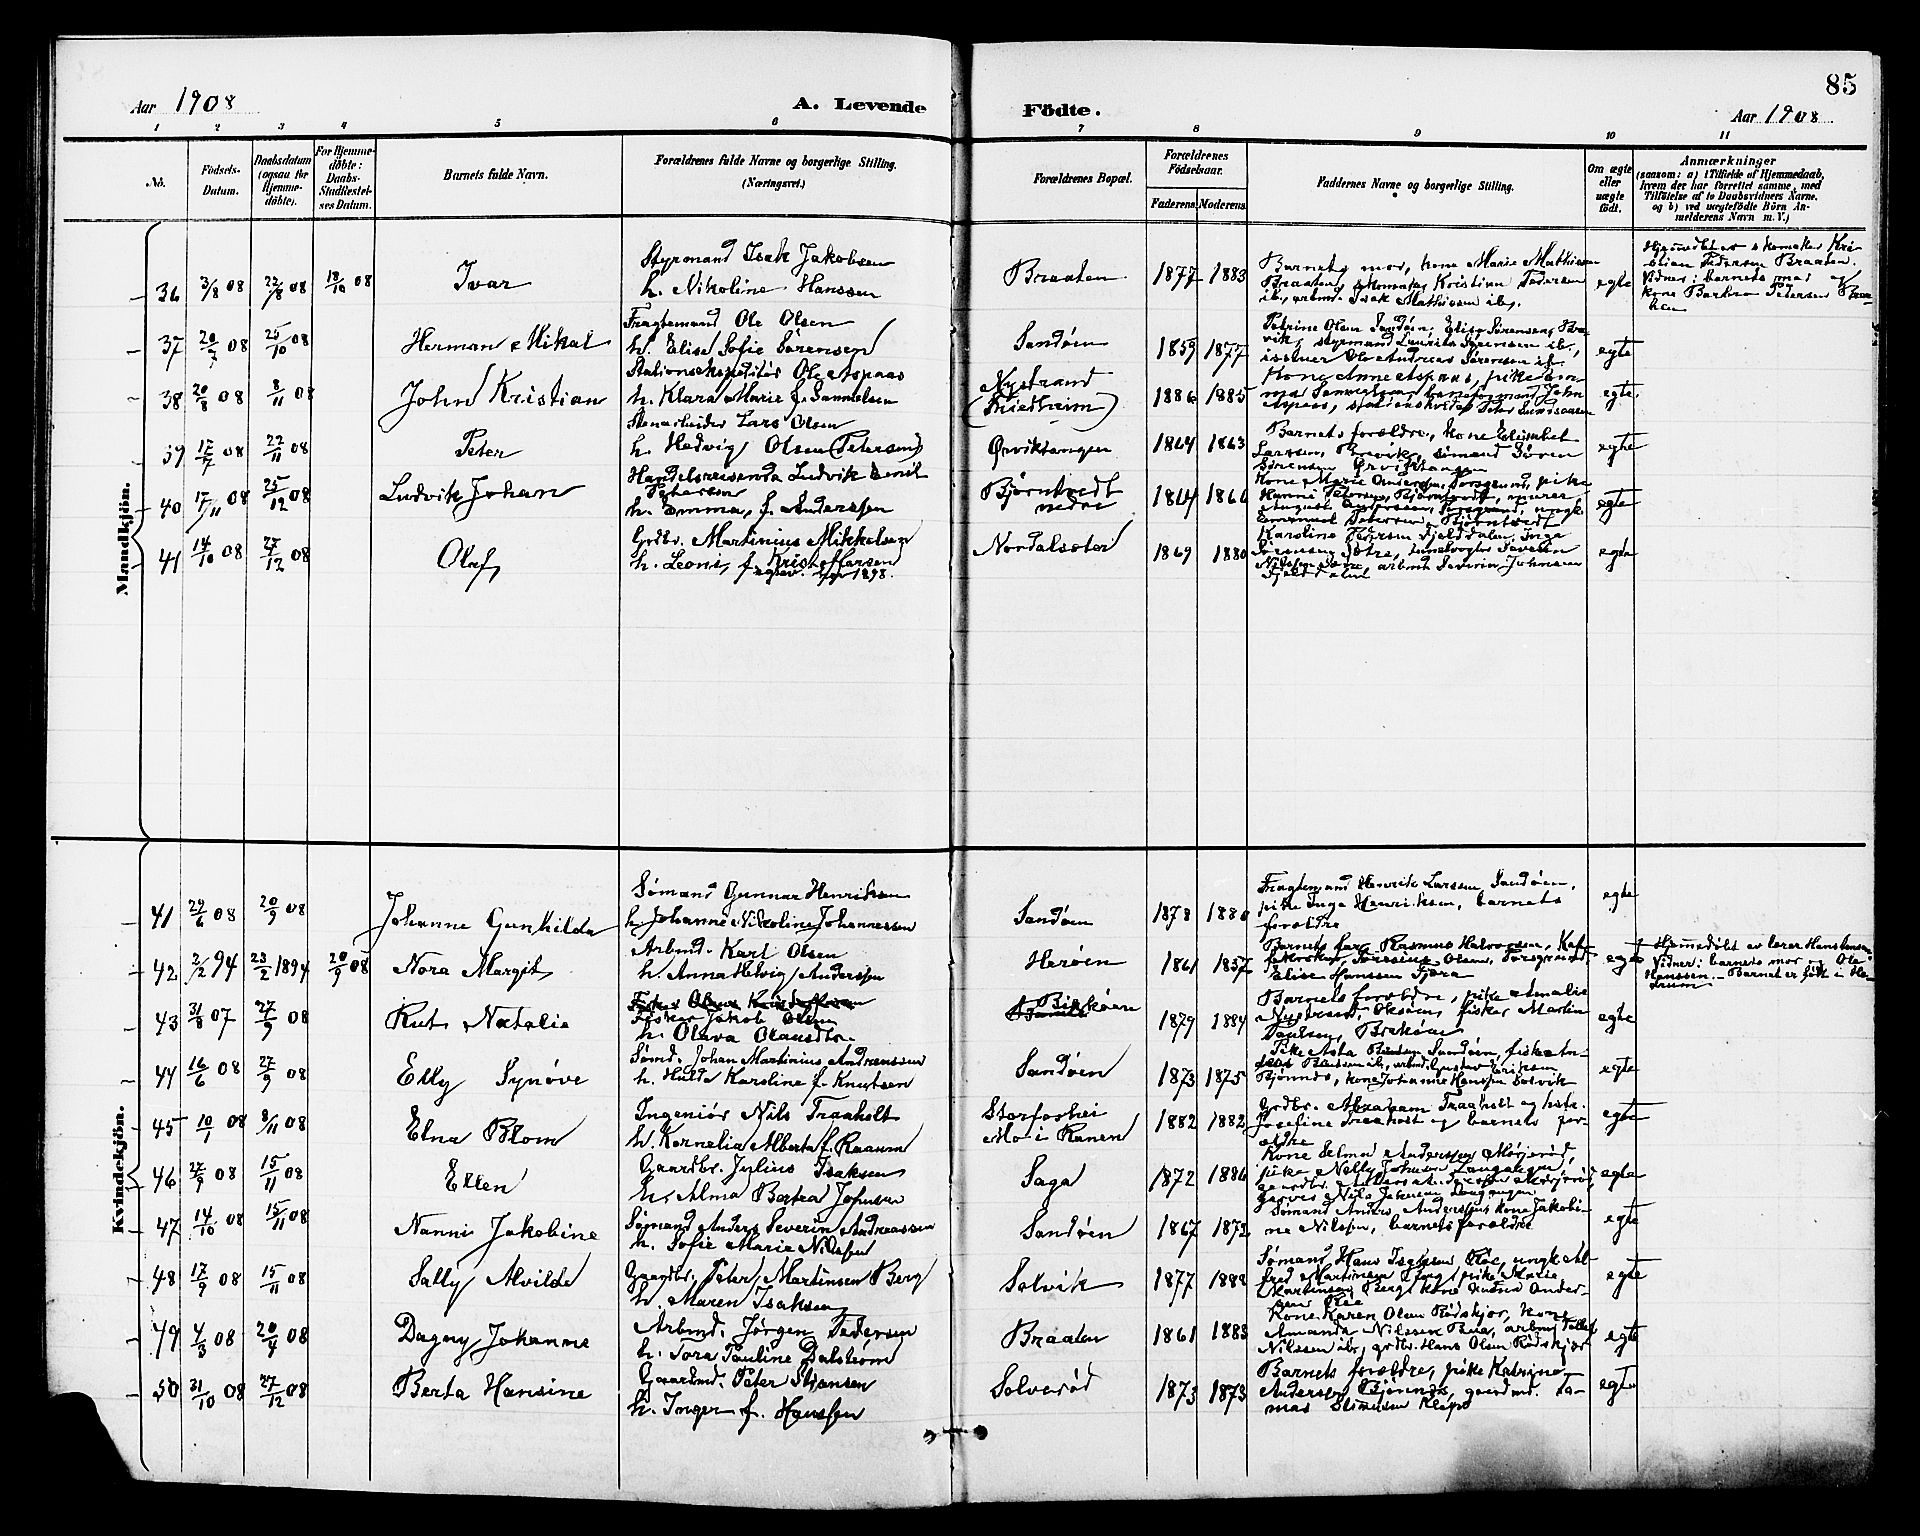 85
Aar 1908
A. Levende Födte.
Aar 1908
1 2 3 4 5 6 7 8 9 10 11
No.
Födsels-Datum.
Daabsdatum (ogsaa for Hjemme-döbte).
For Hjemme-döbte: Daabs-Stadfæstel-ses Datum.
Barnets fulde Navn.
Forældrenes fulde Navne og borgerlige Stilling.
(Næringsvei.)
Forældrenes Bopæl.
Forældrenes Födselsaar.
Faderens. Moderens.
Faddernes Navne og borgerlige Stilling.
Om ægte eller uægte født.
Anmærkninger
(saasom: a) i Tilfælde af Hjemmedaab,
hvem der har forrettet samme, med
Tilføielse af to Daabsvidners Navne,
og b) ved uægtefödte Börn An-
melderens Navn m. V.)
Mandkjön.
36 3/8 08 22/8 08 18/10 08 Ivar
Styrmand Isak Jakobsen
h. Nikoline Hanssen
Braaten 1877 1883
Barnets mor, kone Marie Mathissen
Braaten, skomaker Kristian Pedersen
ib., arbmd. Isak Mathissen ib.
egte
Hjemmedöbt av skomaker Kri-
stian Pedersen Braaten.
Vidner: barnets mor og
kone Barbra Pedersen Braa-
ten
37 20/7 08 25/10 08 Herman Mikal
Fragtemand Ole Olsen
h. Elise Sofie Sørensen
Sandøen 1859 1877
Petrine Olsen Sandøen, Elise Sørensen, Bre-
vik, styrmand Laurits Sørensen ib.,
Ole Andreas Sørensen ib.
egte
38 20/8 08 8/11 08 John Kristian
Stationsekspeditør Ole Aspaas
h. Klara Marie f. Samuelsen
Nystrand
(Friedheim) 1886 1885
Kone Anne Aspaas, pike Em-
ma Samuelsen, baneformand John
Aspaas,
egte
39 12/7 08 22/11 08 Peter
Stenarbeider Lars Olsen
h. Hedvig Olsen (Petersen)
Ørviktangen 1864 1863
Barnets forældre, kone Elisabet
Larsen, Brevik, sømand Søren
Sørensen Ørviktangen
egte
40 17/11 08 25/12 08 Ludvik Johan
Handelsreisende Ludvik Ernst
Petersen
h. Emma, f. Anderssen
Bjørntvedt
nedre 1864 1866
egte
41 14/10 08 27/12 08 Olaf
Grdbr. Martinius Mikkelsen
h. Leoni, f. Kristoffersen
egtev. 1898.
Nordalsæter 1869 1880
Karoline Pedersen Fjelddalen, Inga
Nilssen, arbmd. Severin Johnsen
Fjelddalen
egte
Kvindekjön.
41 29/6 08 20/9 08 Johanne Gunhilda
Sømand Gunnar Henriksen
h. Johanne Nikoline Johannessen
Sandøen 1878 1880
Fragtemand Henrik Larssen, Sandøen,
pike Inga Henriksen, barnets
forældre
egte
42 2/2 94 23/2 1894 20/9 08 Nora Margit
Arbmd. Karl Olsen
h. Anna Helvig Anderssen
Herøen 1861 1857
Barnets far, Rasmus Halvorsen,
Olsen, Porsgrund,
Elise Hanssen Tjora
egte
Hjemmedöbt av lærer Hans Jensen.
Vidner: barnets mor og Ole
Hanssen. Barnet er født i He-
drum.
43 31/8 07 27/9 08 Rut Natalie
Fisker Jakob Olsen
h. Olava Olausdtr.
Birkøen 1879 1884
Barnets forældre, pike Amalie
fisker Martin
Paulsen, Birkøen
egte
44 16/6 08 27/9 08 Elly Synøve
Sømd. Johan Martinius Andreassen
h. Hulda Karoline f. Knutsen
Sandøen 1873 1875
Pike Asta Sandøen, fisker An-
dreas arbmd. Gustav Eriksen
Bjønnes, kone Johanne Hanssen Solvik
egte
45 10/1 08 8/11 08 Elna Blom
Ingeniør Nils Traaholt
h. Kornelia Alberta f. Raaum
Storforshei
Mo i Ranen 1882 1882
Grdbr. Abraham Traaholt og hstr.
Josefine Traaholt og barnets for-
ældre
egte
46 27/9 08 15/11 08 Ellen
Gaardbr. Julius Isaksen
h. Alma Bertea Johnsen
Saga 1872 1886
Kone Selma Anderssen Mørjerød,
pike Nelly Johnsen Langangen,
gaardbr. Anders Anderssen Mørjerød,
Nils Johnsen Langangen
egte
47 14/10 08 15/11 08 Nanni Jakobine
Sømand Anders Severin Andreassen
h. Sofie Marie Nilssen
Sandøen 1867 1872
Sømand Anders Anderssen, kone Jakobi-
ne Nilssen, barnets forældre
egte
48 17/9 08 15/11 08 Sally Alvilde
Gaardbr. Peter Martinsen Berg
h. Maren Isaksen
Solvik 1877 1888
Sømand Hans Isaksen Röe, ungk. Al-
fred Martinsen Berg, pike Marie
Martinsen Berg, kone Ander-
sen Röe
egte
49 4/3 08 20/4 08 Dagny Johanne
Arbmd. Jørgen Pedersen
h. Tora Pauline Dalstrøm
Braaten 1861 1883
Kone Karen Olsen Rødskjær, kone
Amanda Nilssen arbmd.
Nilssen ib., grdbr. Hans Olsen Rødskjær
egte
50 31/10 08 27/12 08 Berta Hansine
Gaardmd. Peter Stiansen
h. Inger f. Hanssen
Solverød 1873 1873
Barnets forældre, pike Katrine
Anderssen Bjønnes, gaardmd. To-
mas Simensen Klepp
egte